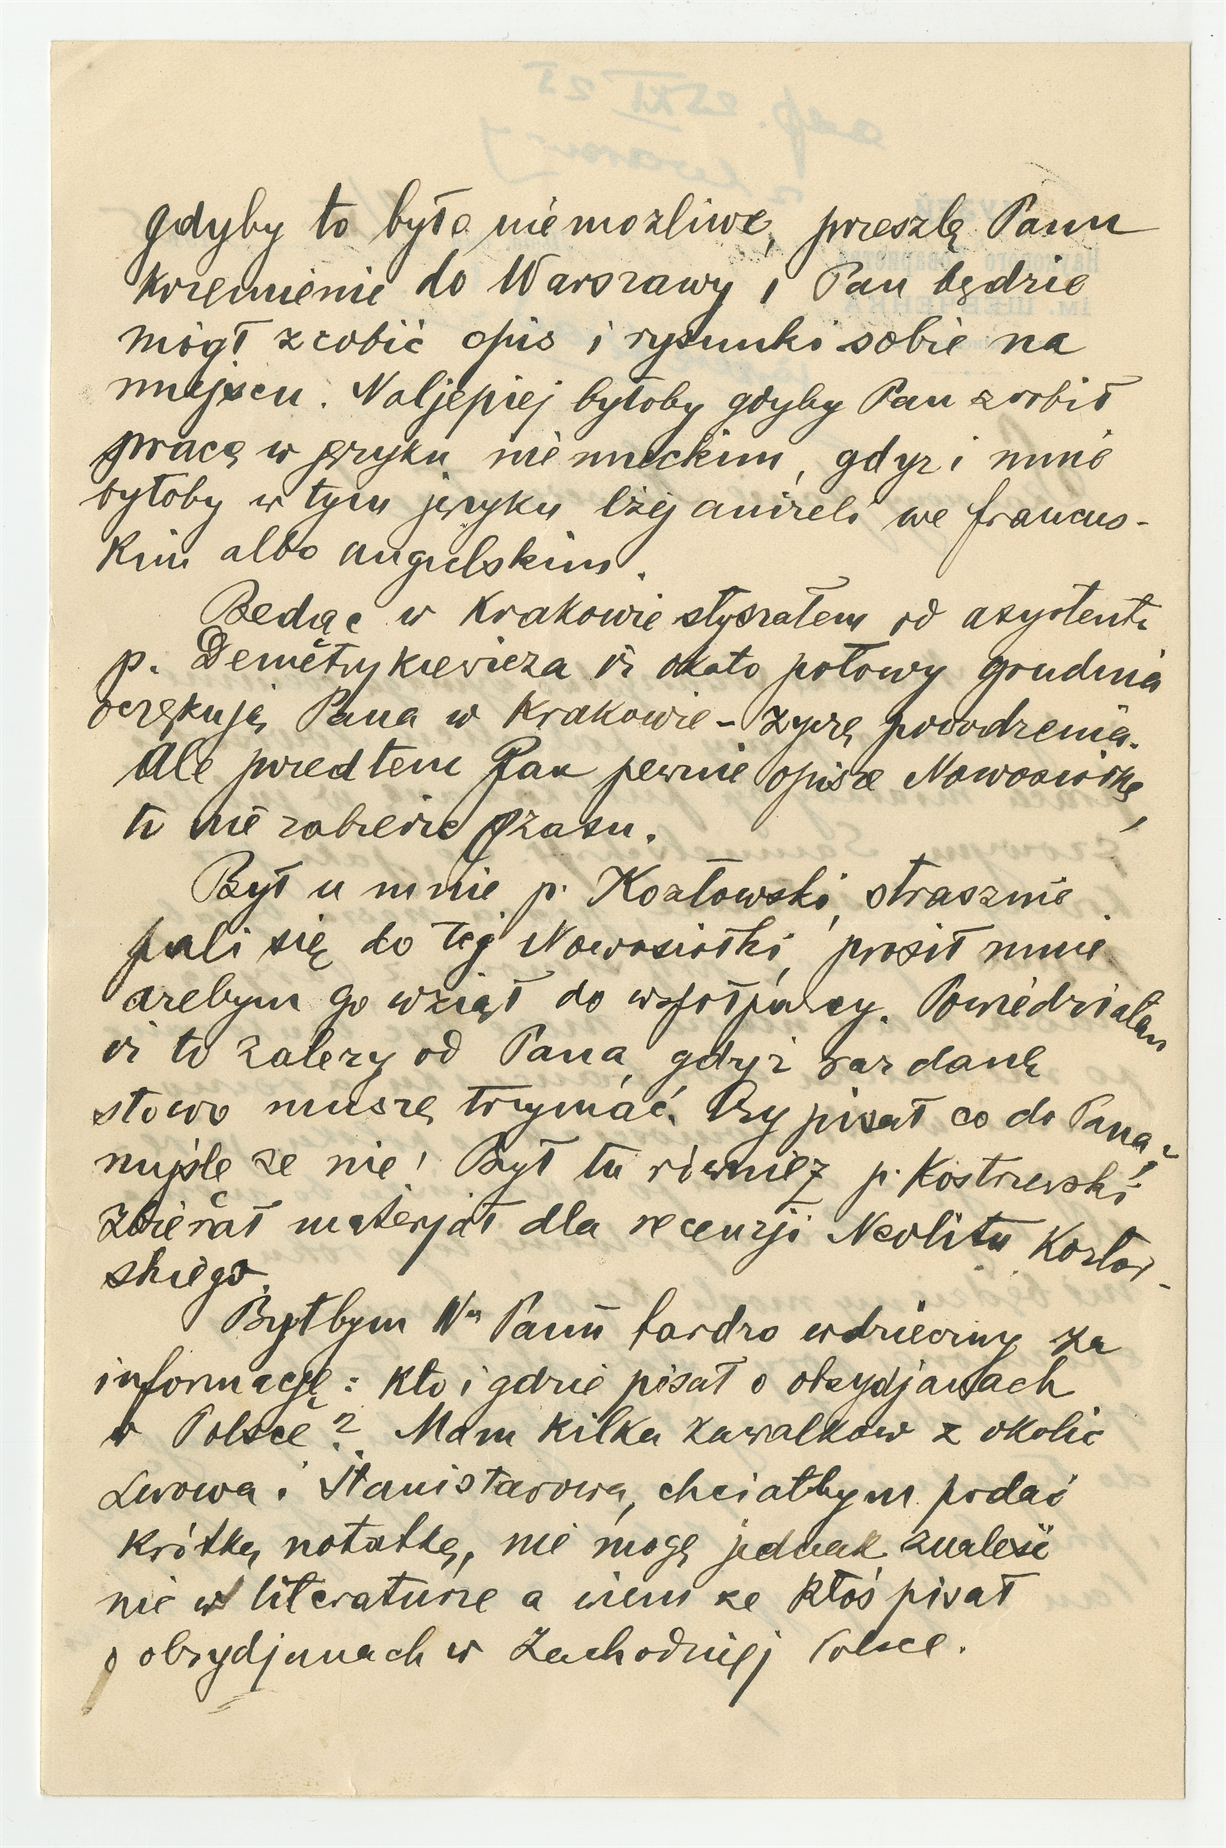 gdyby to było niemożliwe, przeszlę Panu
krzemienie do Warszawy i Pan będzie
mógł zrobić opis i rysunki sobie na
miejscu. Naljepiej byłoby gdyby Pan zrobił
pracę w języku niemieckim, gdyż i mnie
byłoby w tym języku lżej aniżeli we francus-
kim albo angielskim.
Będąc w Krakowie słyszałem od asystenta
p. Demetrykiewicza iż około połowy grudnia
oczękują Pana w Krakowie – życzę powodzenia.
Ale przedtem Pan pewnie opisze Nowosiółkę,
to nie zabierze czasu.
Był u mnie p. Kozłowski, strasznie
pali się do tej Nowosiółki, prosił mnie
azebym go wziął do współpracy. Powiedziałem
iż to zależy od Pana, gdyż raz danę
słowo muszę trzymać. Czy pisał co do Pana?
myślę ze nie! Był tu również p. Kostrzewski
zbierał materjał dla recenzji Neolitu Kozłow-
skiego.
Byłbym W. Panu bardzo wdzięczny za
informację: kto i gdzie pisał o obsydjanach
w Polsce? Mam kilka kawałków z okolic
Lwowa i Stanisławowa, chciałbym podać
krótką notatkę, nie mogę jednak znaleść
nic w literaturze a wiem ze ktoś pisał
o obsydjanach w Zachodniej Polsce.